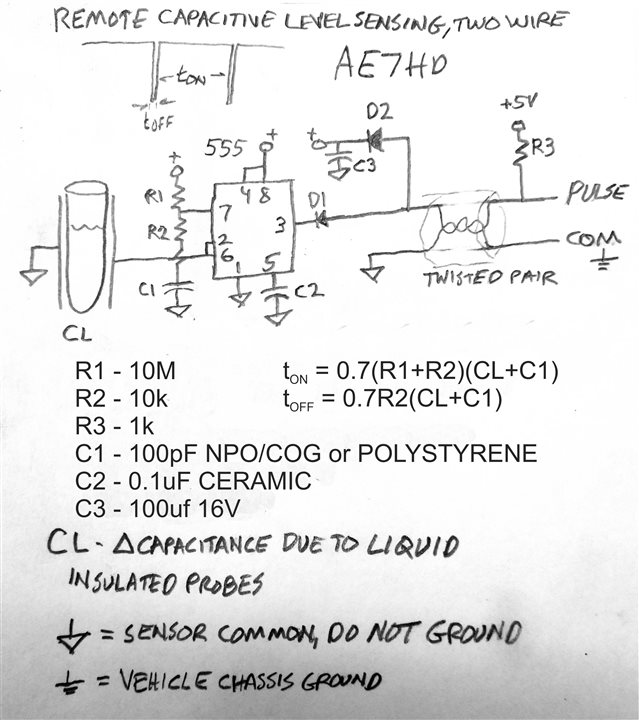 REMOTE CAPACITIVE LEVEL SENSING, TWO WIRE
AE7HD
tON
tOFF
+5V
D2
R3
555
+
+
t
C3
R1
4 8
7
3
D1
PULSE
R2
2
6
1
5
COM
C1
C2
TWISTED PAIR
CL
R1 - 10M tON = 0.7(R1+R2)(CL+C1)
R2 - 10k tOFF = 0.7R2(CL+C1)
R3 - 1k
C1 - 100pF NPO/COG or POLYSTYRENE
C2 - 0.1uF CERAMIC
C3 - 100uf 16V
CL - ΔCAPACITANCE DUE TO LIQUID
INSULATED PROBES
= SENSOR COMMON, DO NOT GROUND
= VEHICLE CHASSIS GROUND